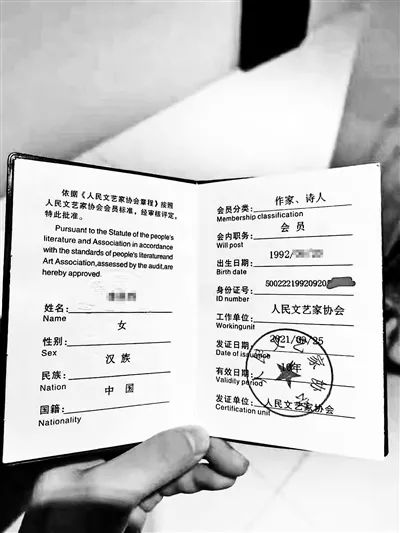 依据《人民文艺家协会章程》按照
人民文艺家协会会员标准，经审核评定，
特此批准。
Pursuant to the Statute of the people's
literature and Association in accordance
with the standards of people's literatureand
Art Association,assessed by the audit,are
hereby approved.
姓名:
Name
女
性别:
Sex
汉 族
民族:
Nation
中 国
国籍:
Nationality
会员分类: 作家、诗人
Membership classification
会内职务: 会 员
Will post
出生日期: 1992/
Birth date
身份证号: 50022219920920
ID number
工作单位: 人民文艺家协会
Workingunit
发证日期: 2021/09/25
Date of issuance
有效日期: 10年
Validity period
发证单位: 人民文艺家协会
Certification unit